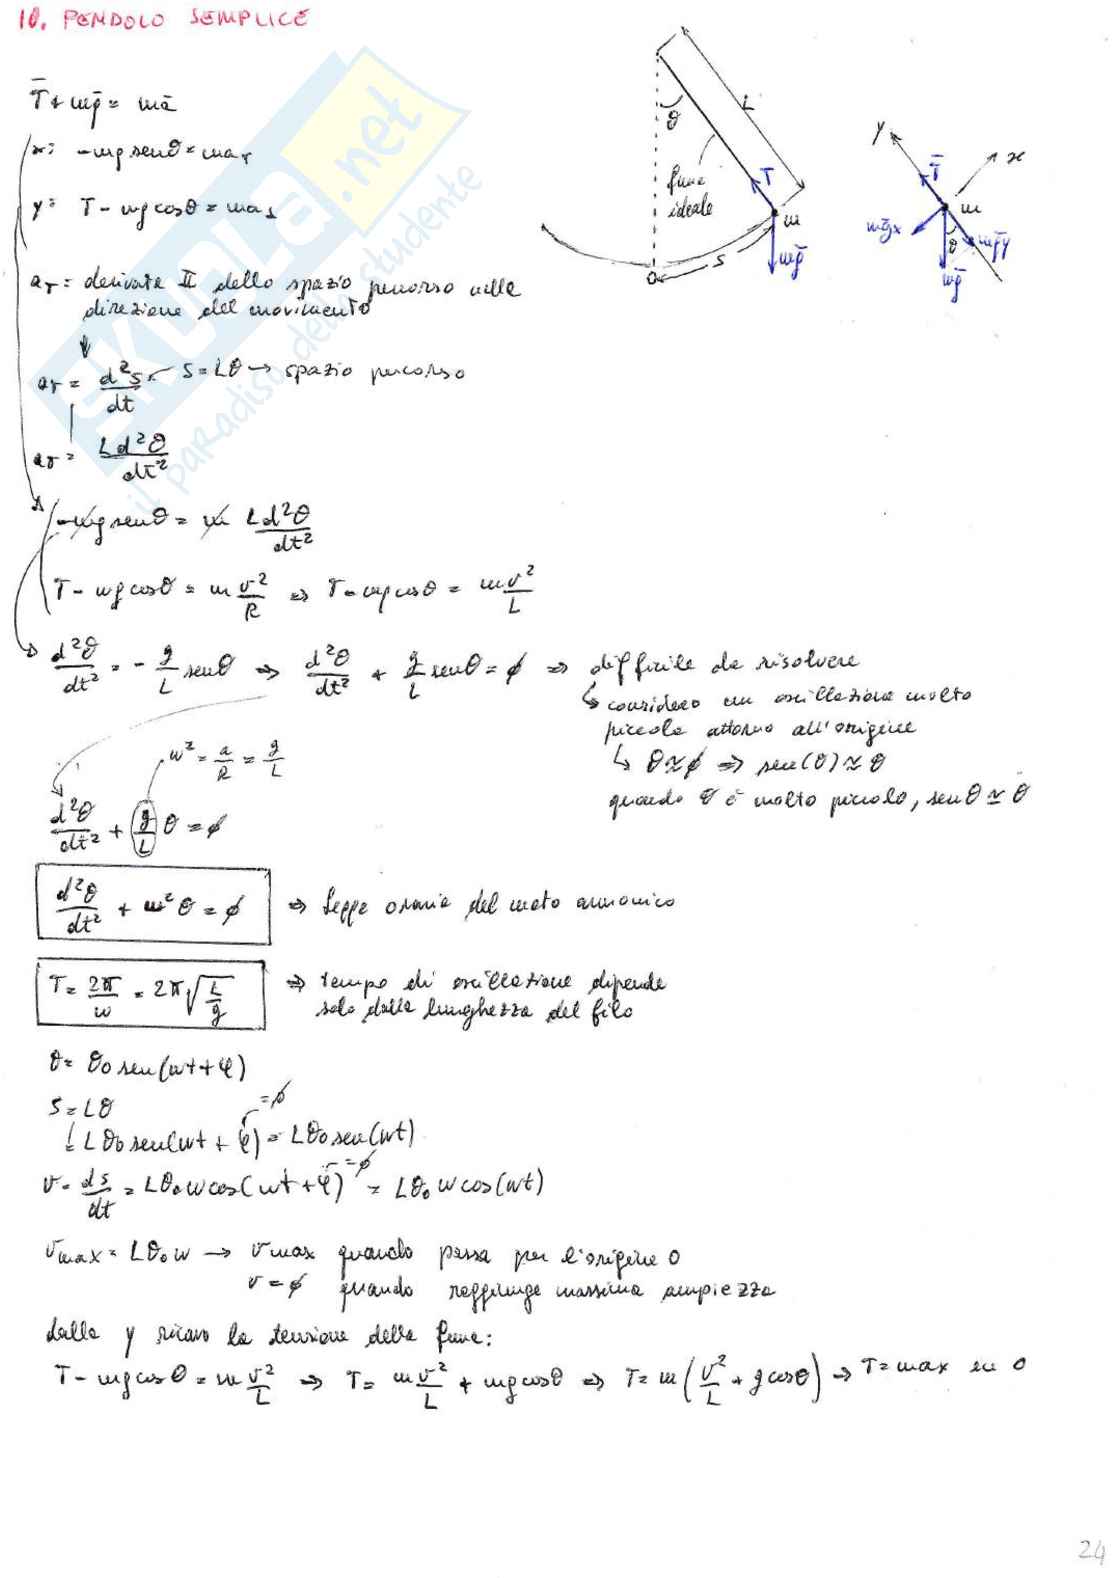 10. PENDOLO SEMPLICE
T̄ + mḡ = mā
x: -mg senθ = maT
y: T - mg cosθ = ma⊥
aT = derivata II dello spazio percorso nella
direzione del movimento
aT = d²s/dt
S = Lθ → spazio percorso
aT = Ld²θ/dt²
-mg senθ = m Ld²θ/dt²
T - mg cosθ = m v²/R ⇒ T - mg cosθ = m v²/L
d²θ/dt² = - g/L senθ ⇒ d²θ/dt² + g/L senθ = ∅ ⇒ difficile da risolvere
↳ considero un oscillazione molto
piccola attorno all'origine
↳ θ ≈ ∅ ⇒ sen(θ) ≈ θ
quando θ è molto piccolo, senθ ≃ θ
w² = a/R = g/L
d²θ/dt² + g/L θ = ∅
d²θ/dt² + w²θ = ∅ ⇒ legge oraria del moto armonico
T = 2π/w = 2π√L/g ⇒ tempo di oscillazione dipende
solo dalla lunghezza del filo
θ = θ₀ sen(wt + φ)
S = Lθ
= ∅
= Lθ₀ sen(wt + φ) = Lθ₀ sen(wt)
= ∅
v = ds/dt = Lθ₀ w cos(wt + φ) = Lθ₀ w cos(wt)
vmax = Lθ₀w → vmax quando passa per l'origine O
v = ∅ quando raggiunge massima ampiezza
dalla y ricavo la tensione della fune:
T - mg cosθ = m v²/L ⇒ T = m v²/L + mg cosθ ⇒ T = m(v²/L + g cosθ) → T = max in O
θ
L
fune
ideale
T̄
m
mḡ
S
O
y
x
T̄
m
mḡx
θ
mḡy
mḡ
SKUOLA.net
il paradiso dello studente
24